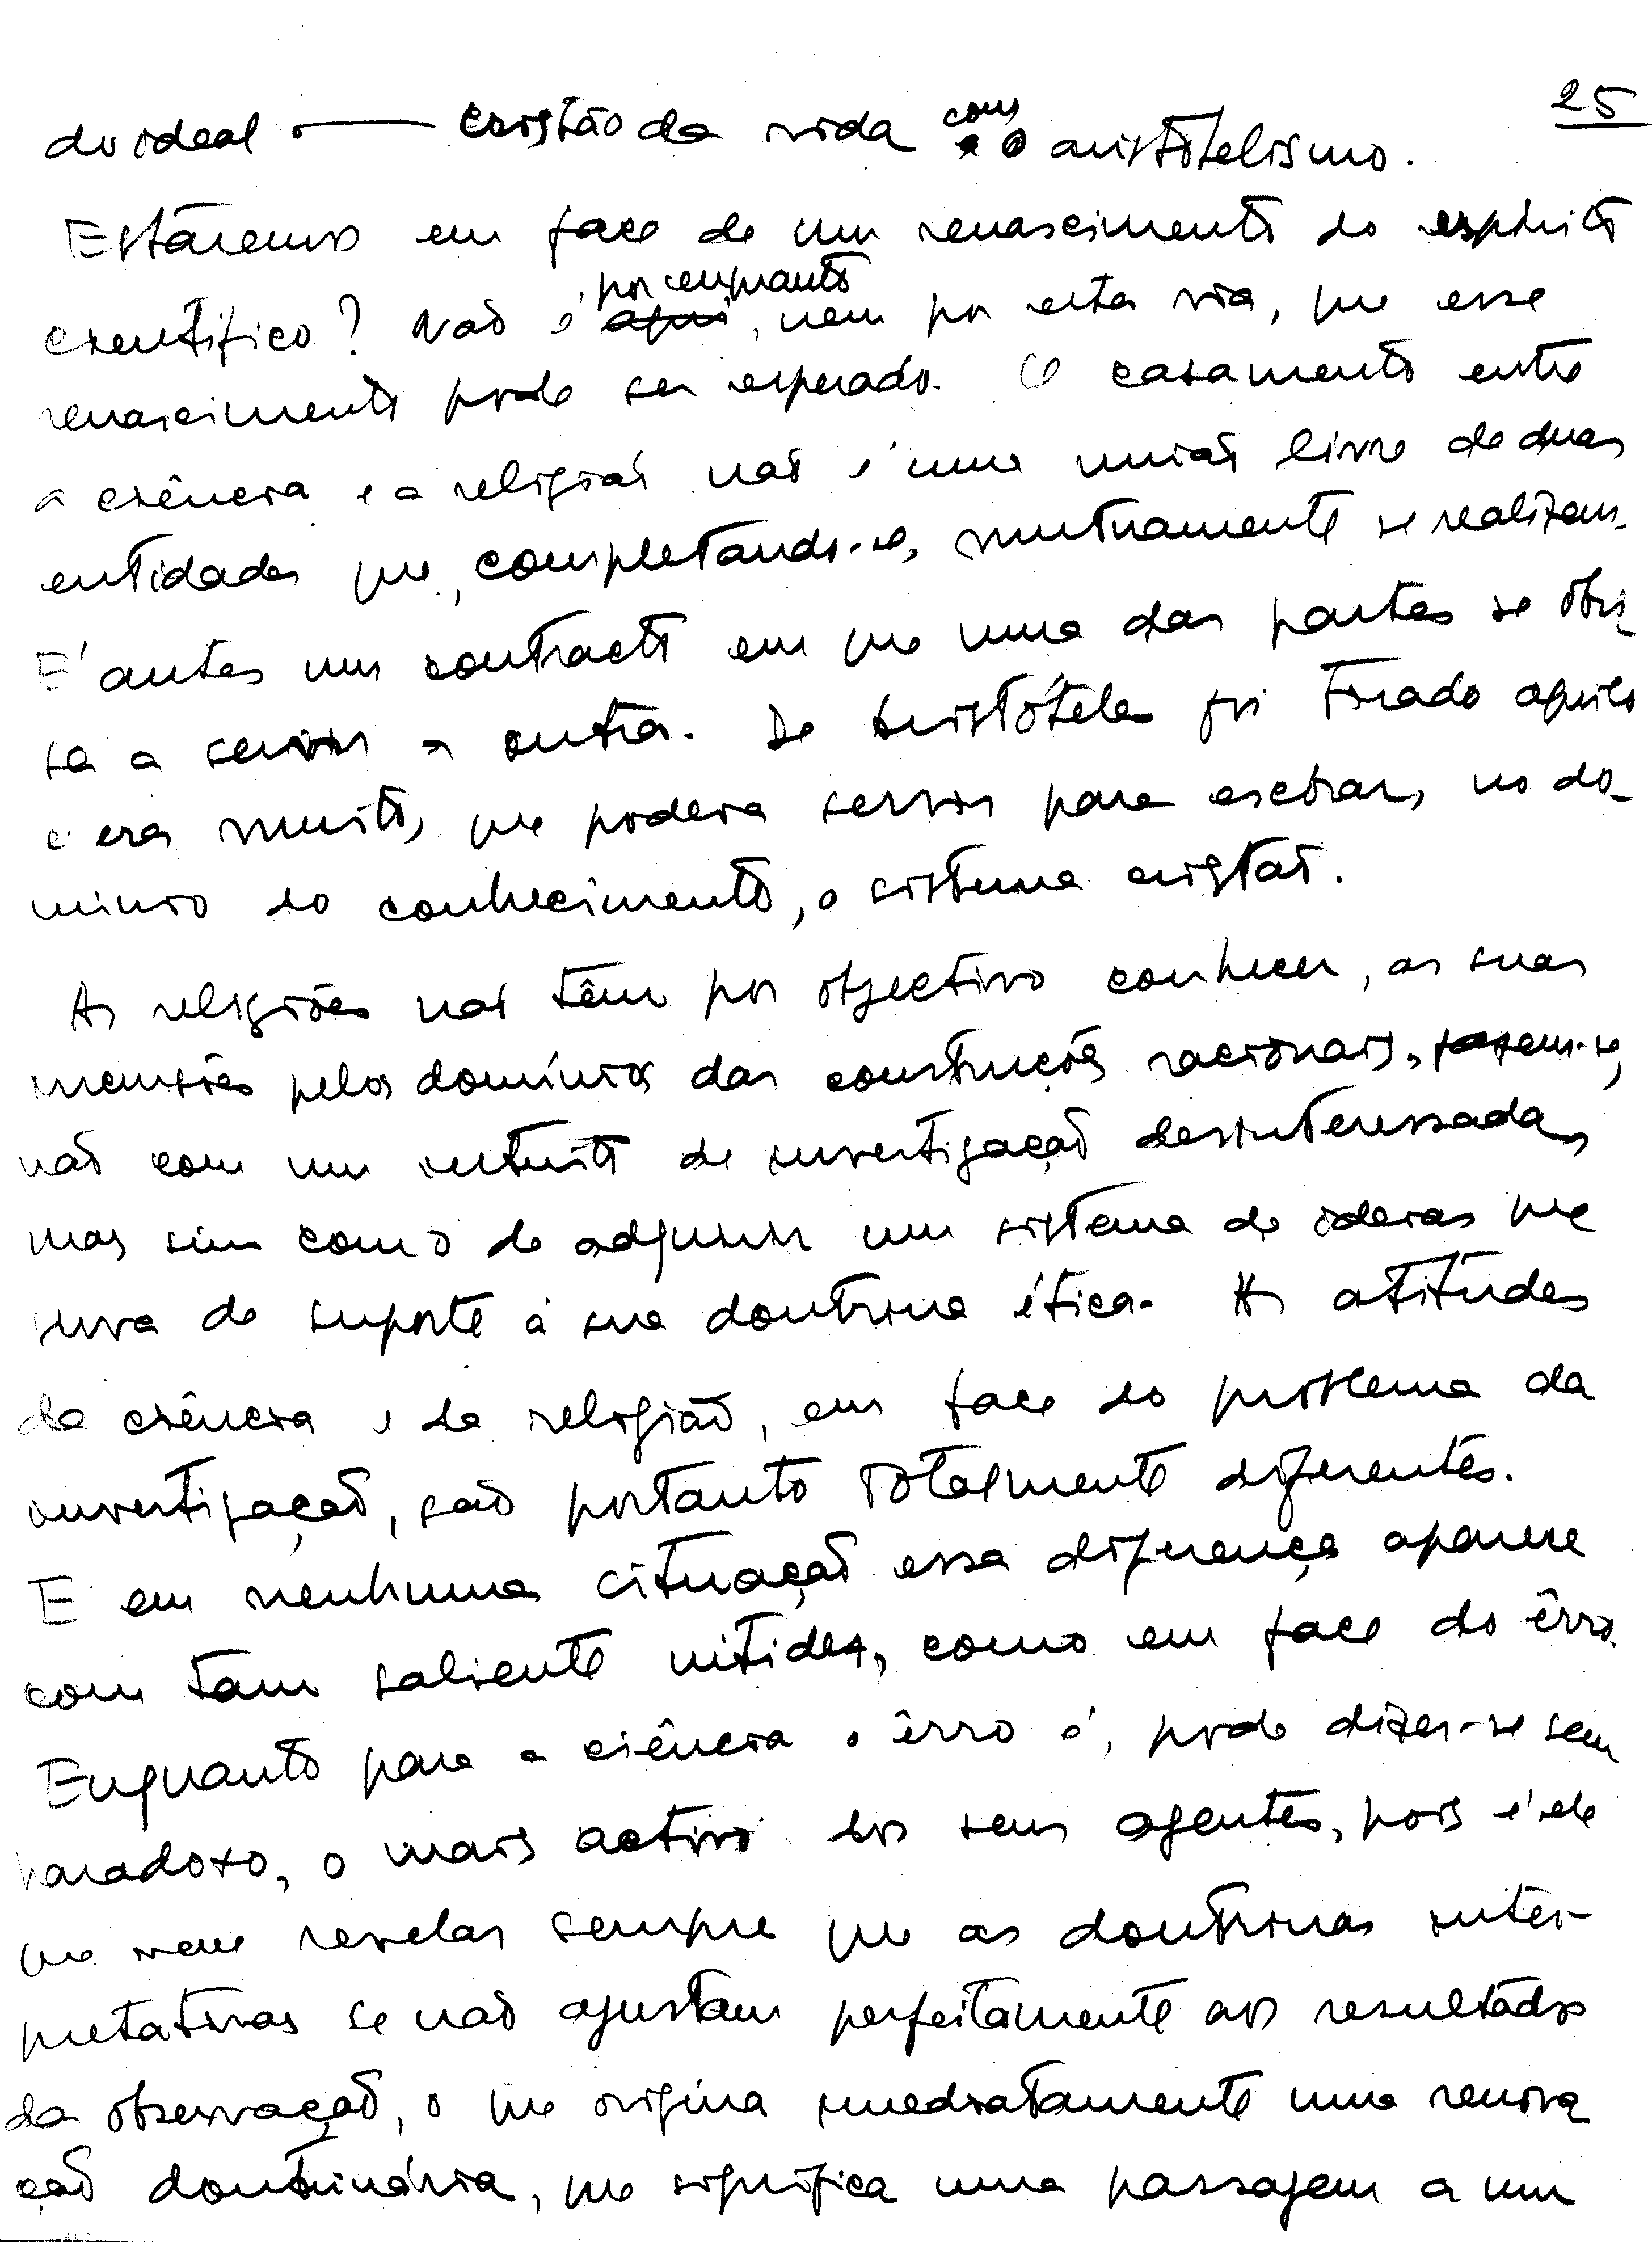 25
do ideal — cristão da vida com o aristotelismo.
Estaremos em face de um renascimento do espírito
científico? Não é por enquanto aqui, nem por esta via, que esse
renascimento pode ser esperado. O casamento entre
a ciência e a religião não é uma união livre de duas
entidades que, completando-se, mutuamente se realizam.
E' antes um contracto em que uma das partes se obri
ga a servir a outra. De Aristóteles foi tirado aquilo
e era muito, que poderia servir para escorar, no do-
mínio do conhecimento, o sistema cristão.
As religiões não têm por objectivo conhecer, as suas
incursões pelos domínios das construções racionais, fazem-se,
não com um intuito de investigação desinteressada,
mas sim com o de adquirir um sistema de ideias que
sirva de suporte à sua doutrina ética. As atitudes
da ciência e da religião, em face do problema da
investigação, são portanto totalmente diferentes.
E em nenhuma situação essa diferença aparece
com tam saliente nitidez, como em face do êrro.
Enquanto para a ciência o êrro é, pode dizer-se sem
paradoxo, o mais activo dos seus agentes, pois é ele
que vem revelar sempre que as doutrinas inter-
pretativas se não ajustam perfeitamente aos resultados
da observação, o que origina imediatamente uma renova
ção doutrinária, que significa uma passagem a um